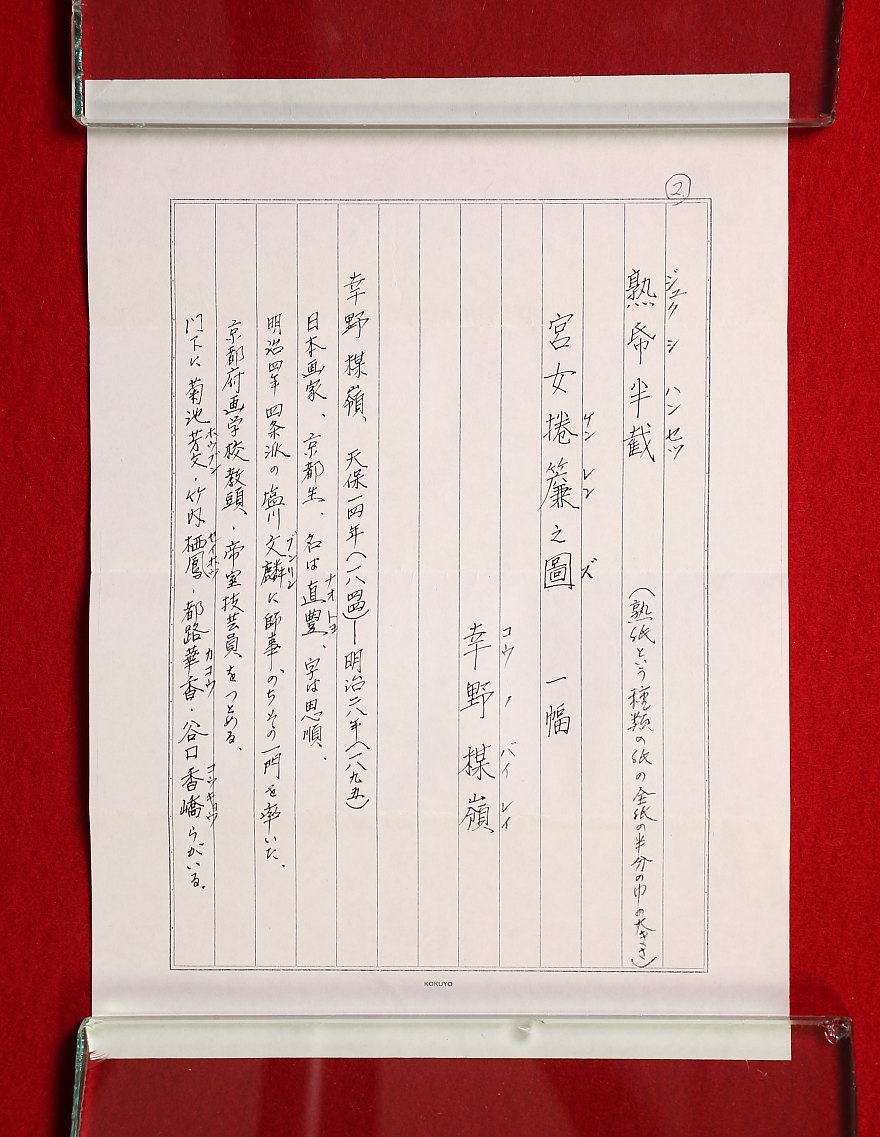 ②
ジュク シ ハンセツ
熟帋半截 (熟紙という種類の紙の全紙の半分の巾の大きさ)
ケンレン ズ
宮女捲簾之圖 一幅
コウノ バイレイ
幸野楳嶺
幸野楳嶺、天保一四年(一八四四)―明治二八年(一八九五)
日本画家、京都生、名は直豊、字は思順、
ナオトヨ
明治四年四条派の塩川文麟に師事、のちその一門を率いた。
ブンリン
京都府画学校教頭、帝室技芸員をつとめる、
門下に菊池芳文・竹内栖鳳・都路華香・谷口香嶠らがいる。
ホウブン セイホウ カコウ コウキョウ
KOKUYO